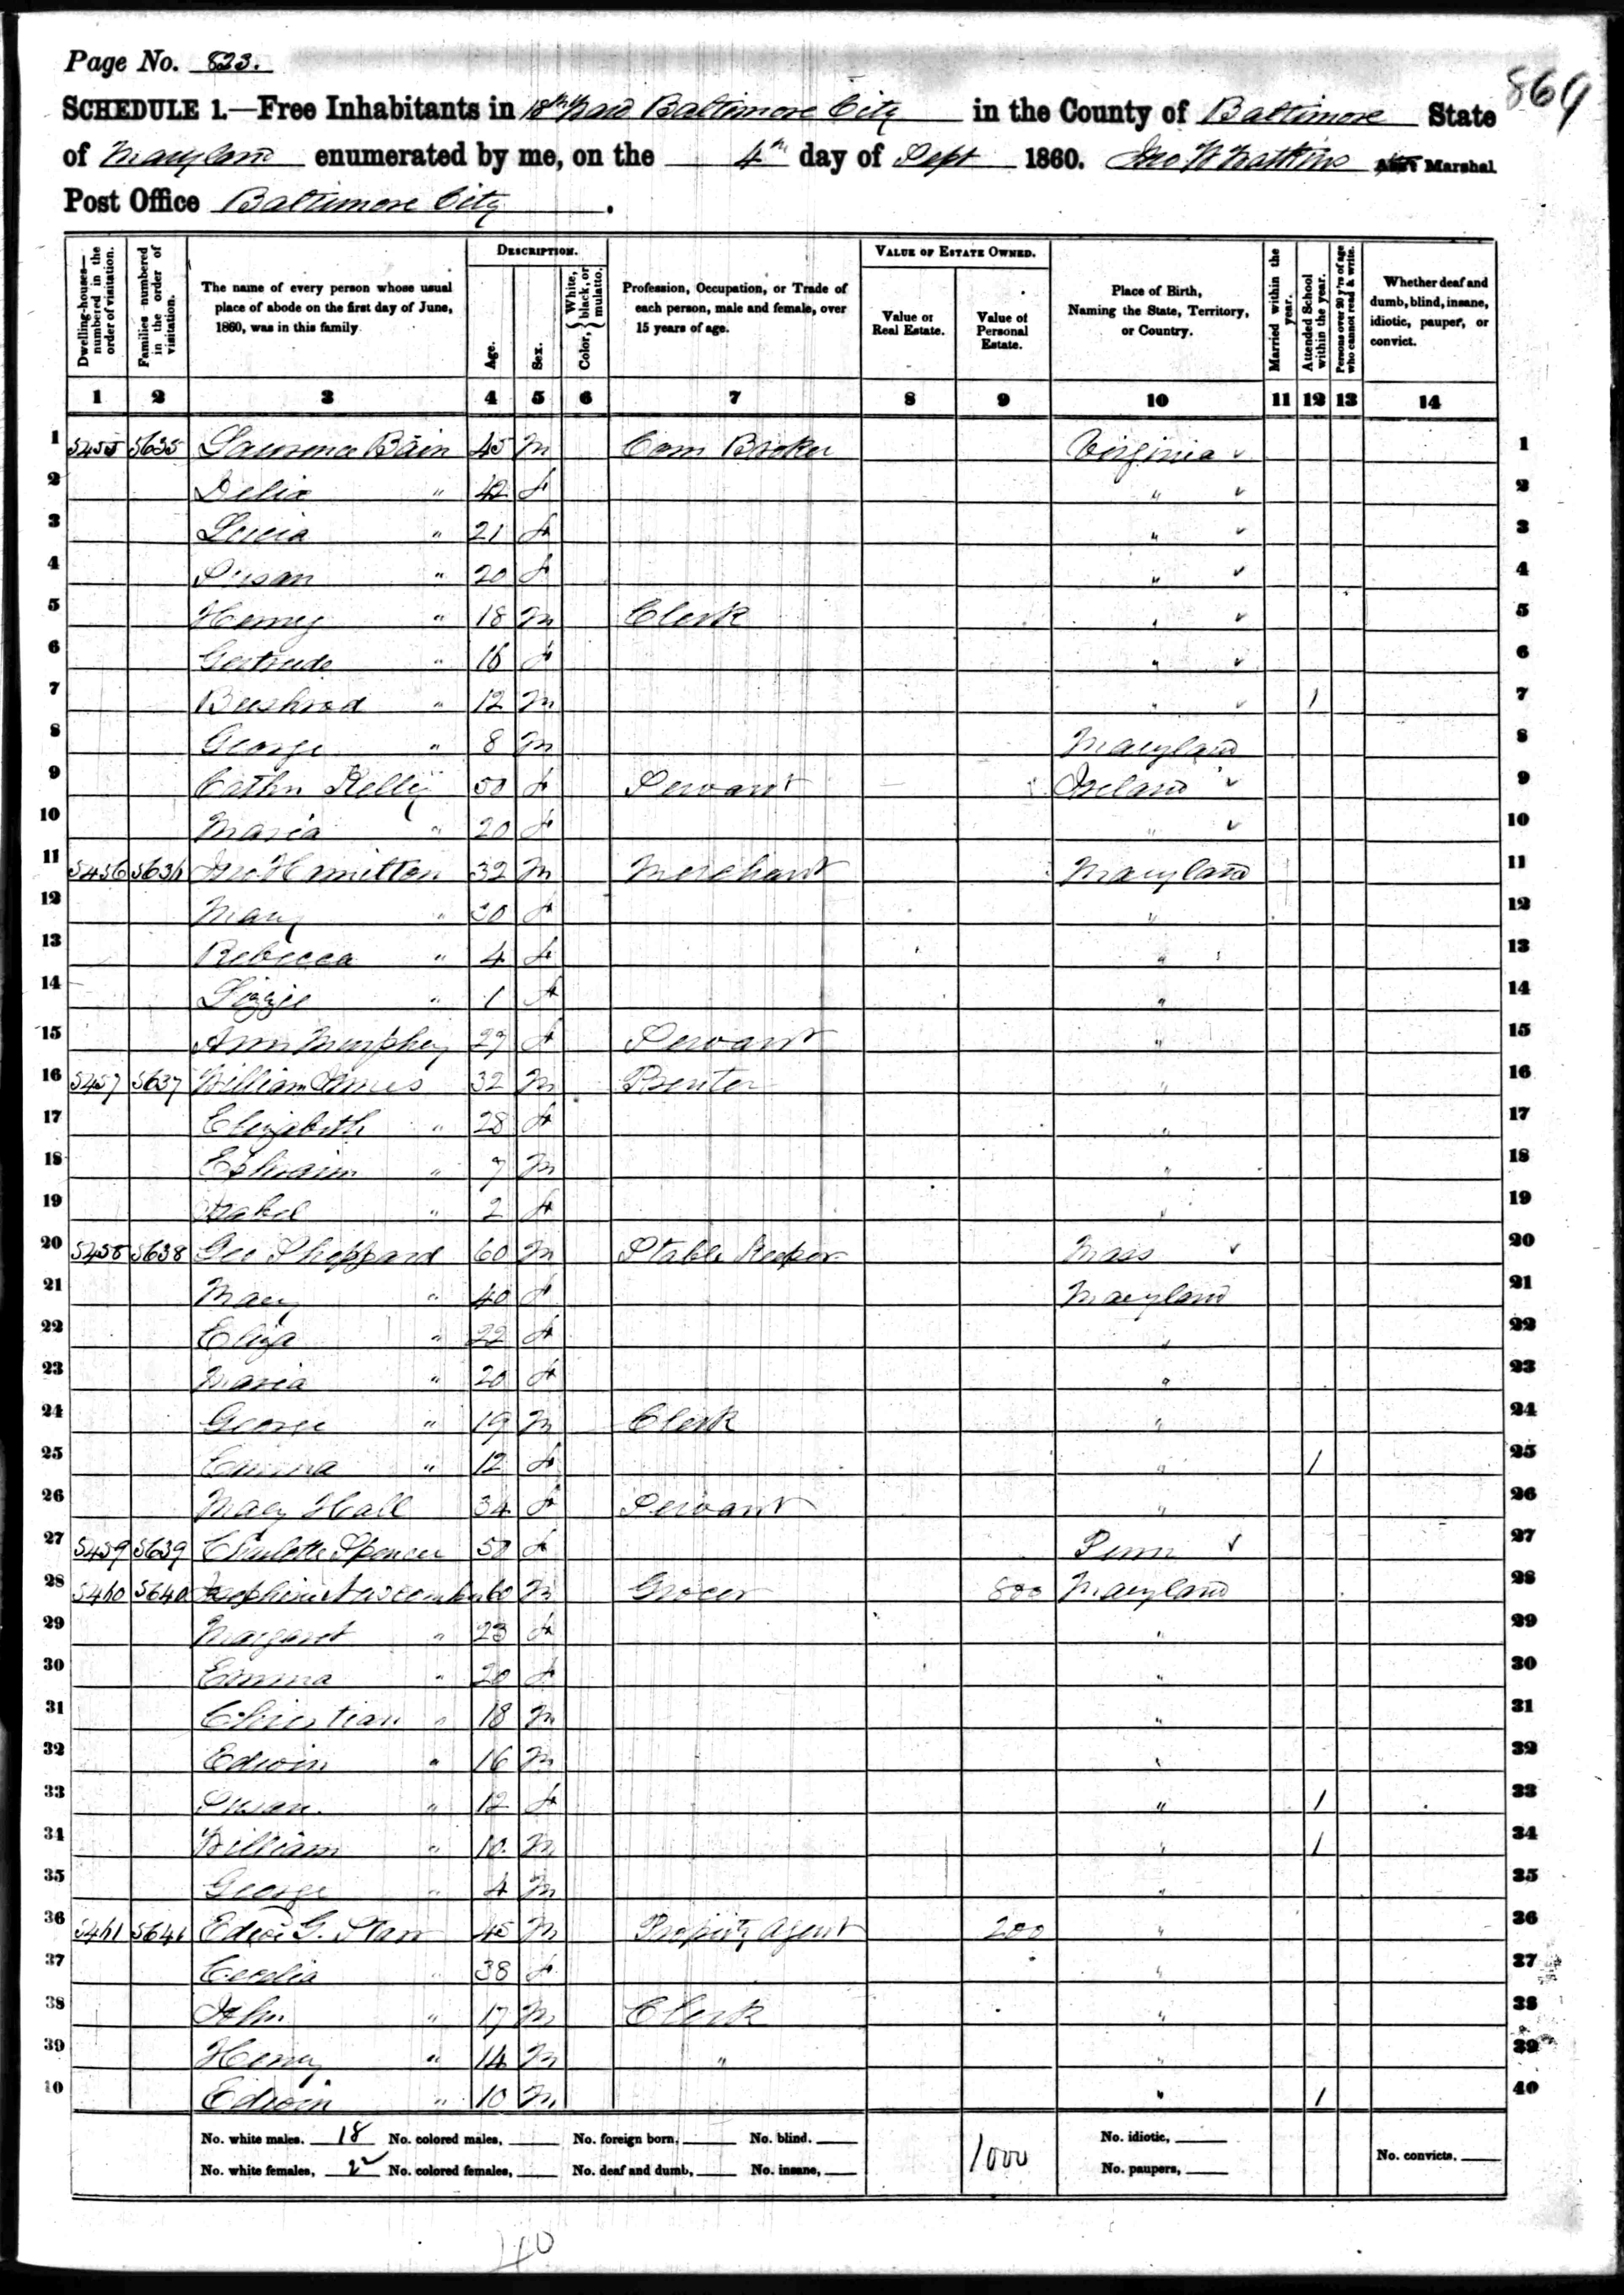 Page No. 823.
869
SCHEDULE 1.—Free Inhabitants in 18th Ward Baltimore City in the County of Baltimore State
of Maryland enumerated by me, on the 4th day of Sept 1860. Jno W Watkins Ass't Marshal
Post Office Baltimore City.
Dwelling-houses—numbered in the order of visitation.
Families numbered in the order of visitation.
The name of every person whose usual place of abode on the first day of June, 1860, was in this family.
DESCRIPTION.
Age.
Sex.
Color, { White, black, or mulatto.
Profession, Occupation, or Trade of each person, male and female, over 15 years of age.
VALUE OF ESTATE OWNED.
Value of Real Estate.
Value of Personal Estate.
Place of Birth, Naming the State, Territory, or Country.
Married within the year.
Attended School within the year.
Persons over 20 y'rs of age who cannot read & write.
Whether deaf and dumb, blind, insane, idiotic, pauper, or convict.
1 2 3 4 5 6 7 8 9 10 11 12 13 14
1 5455 5635 Laurence Bain 45 M Com Broker Virginia ✓ 1
2 Delia " 42 f " ✓ 2
3 Lucia " 21 f " ✓ 3
4 Susan " 20 f " ✓ 4
5 Henry " 18 M Clerk " ✓ 5
6 Gertrude " 16 f " ✓ 6
7 Bushrod " 12 M " ✓ 1 7
8 George " 8 M Maryland 8
9 Cathn Kelly 50 f Servant Ireland ✓ 9
10 Maria " 20 f " ✓ 10
11 5456 5636 Jno Hamilton 32 M Merchant Maryland 11
12 Mary " 30 f " 12
13 Rebecca " 4 f " 13
14 Lizzie " 1 f " 14
15 Ann Murphey 29 f Servant " 15
16 5457 5637 William 32 M " 16
17 Elizabeth " 28 f " 17
18 Ephraim " 7 M " 18
19 " 2 f " 19
20 5458 5638 Geo Sheppard 60 M Stable Keeper Mass ✓ 20
21 Mary " 40 f Maryland 21
22 Eliza " 22 f " 22
23 Maria " 20 f " 23
24 George " 19 M Clerk " 24
25 Emma " 12 f " 1 25
26 Mary Hall 34 f Servant " 26
27 5459 5639 Charlotte Spencer 50 f Penn ✓ 27
28 5460 5640 60 M Grocer 800 Maryland 28
29 Margaret " 23 f " 29
30 Emma " 20 f " 30
31 Christian " 18 M " 31
32 Edwin " 16 M " 32
33 Susan " 12 f " 1 33
34 William " 10 M " 1 34
35 George " 4 M " 35
36 5461 5641 Edwd G. Starr 45 M Property Agent 200 " 36
37 Cecelia " 38 f " 37
38 John " 17 M Clerk " 38
39 Henry " 14 M " " 39
40 Edwin " 10 M " 1 40
No. white males, 18 No. colored males, No. foreign born, No. blind, No. idiotic,
No. white females, 22 No. colored females, No. deaf and dumb, No. insane, 1000 No. paupers, No. convicts,
40